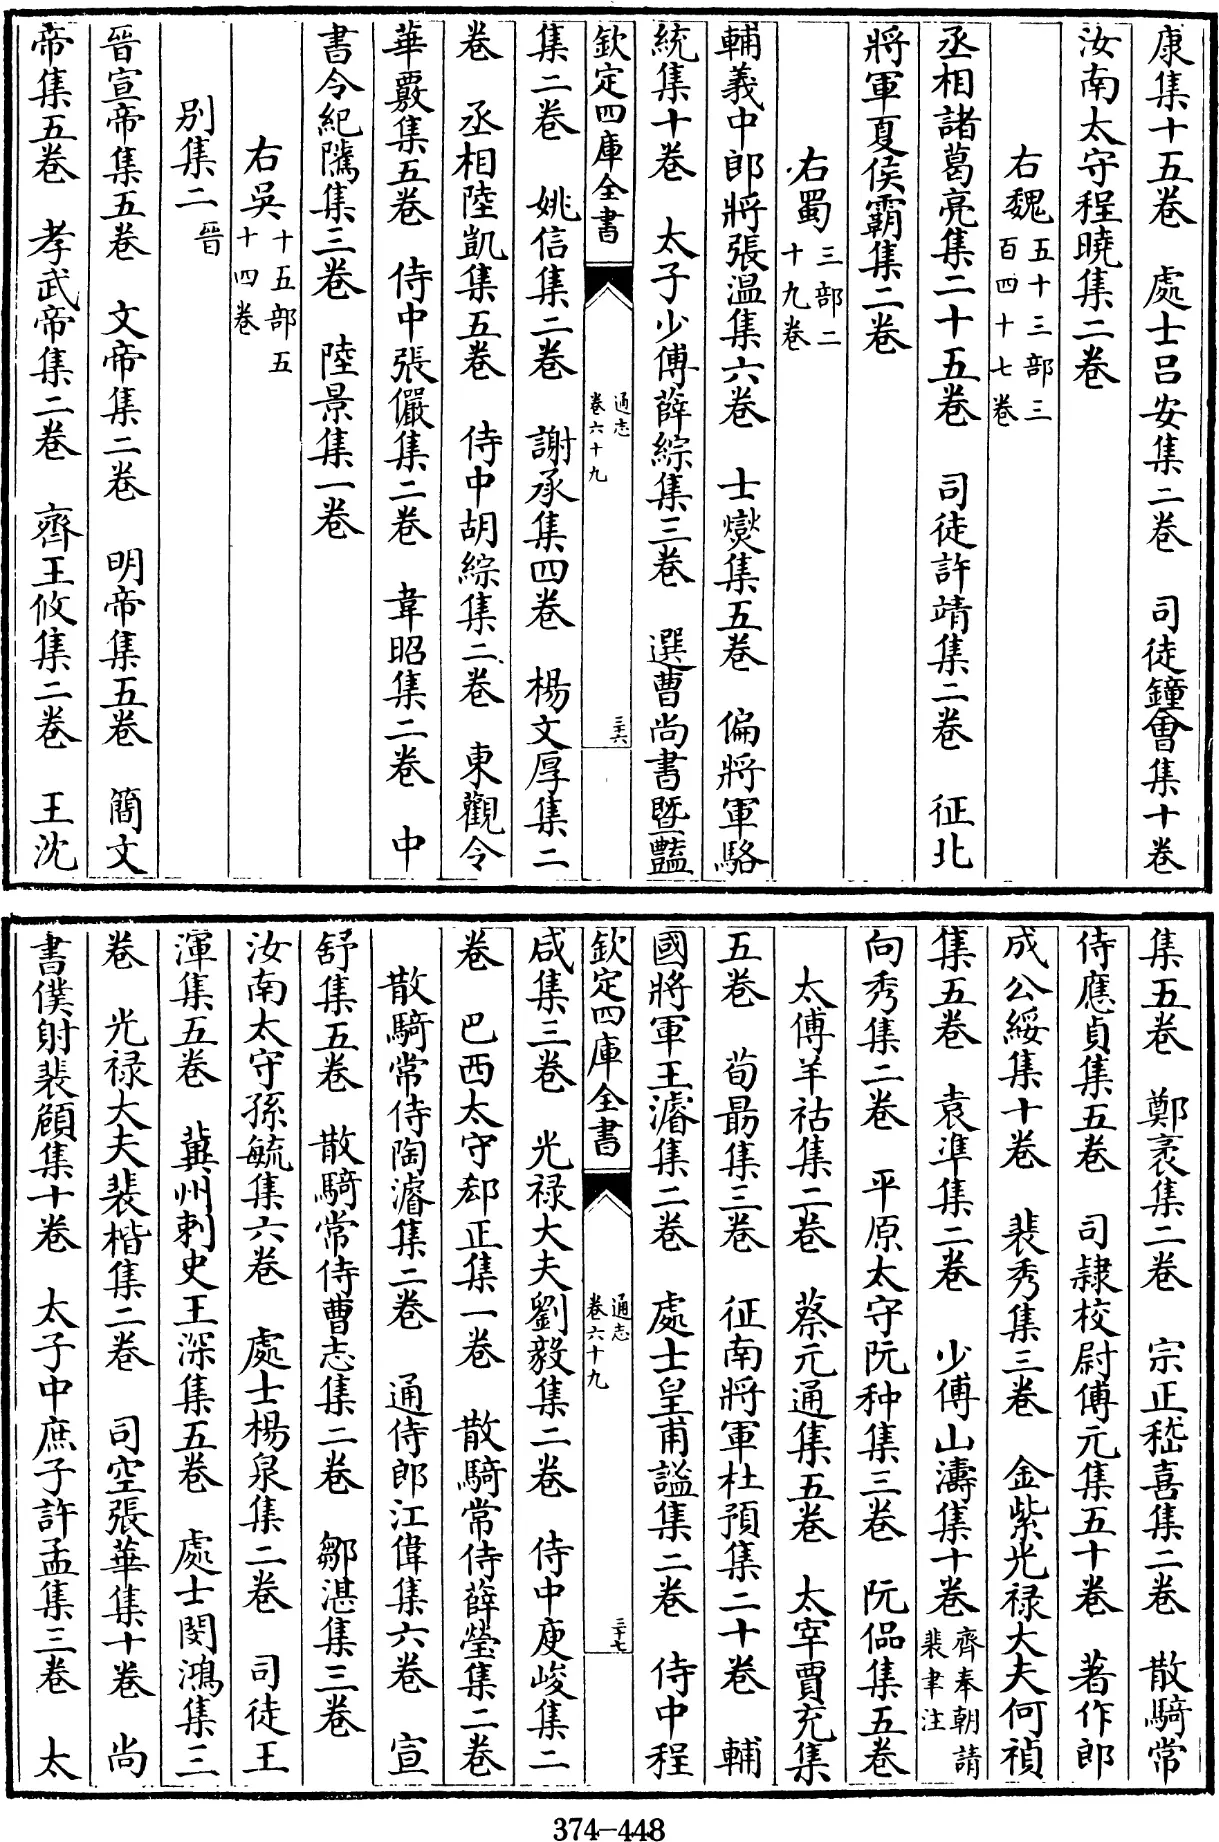 康集十五卷　處士呂安集二卷　司徒鐘會集十卷
汝南太守程曉集二卷
右魏五十三部三百四十七卷
丞相諸葛亮集二十五卷　司徒許靖集二卷　征北
將軍夏侯霸集二卷
右蜀三部二十九卷
輔義中郎將張温集六卷　士燮集五卷　偏將軍駱
統集十卷　太子少傅薛綜集三卷　選曹尚書曁豔
欽定四庫全書　通志卷六十九　三六
集二卷　姚信集二卷　謝承集四卷　楊文厚集二
卷　丞相陸凱集五卷　侍中胡綜集二卷　東觀令
華覈集五卷　侍中張儼集二卷　韋昭集二卷　中
書令紀隲集三卷　陸景集一卷
右吳十五部五十四卷
别集二晉
晉宣帝集五卷　文帝集二卷　明帝集五卷　簡文
帝集五卷　孝武帝集二卷　齊王攸集二卷　王沈
集五卷　鄭袤集二卷　宗正嵇喜集二卷　散騎常
侍應貞集五卷　司隸校尉傅元集五十卷　著作郎
成公綏集十卷　裴秀集三卷　金紫光禄大夫何禎
集五卷　袁準集二卷　少傅山濤集十卷齊奉朝請裴聿注
向秀集二卷　平原太守阮种集三卷　阮侃集五卷
太傅羊祜集二卷　蔡元通集五卷　太宰賈充集
五卷　荀勗集三卷　征南將軍杜預集二十卷　輔
國將軍王濬集二卷　處士皇甫謐集二卷　侍中程
欽定四庫全書　通志卷六十九　三十七
咸集三卷　光禄大夫劉毅集二卷　侍中庾峻集二
卷　巴西太守郄正集一卷　散騎常侍薛瑩集二卷
散騎常侍陶濬集二卷　通侍郎江偉集六卷　宣
舒集五卷　散騎常侍曹志集二卷　鄒湛集三卷
汝南太守孫毓集六卷　處士楊泉集二卷　司徒王
渾集五卷　冀州刺史王深集五卷　處士閔鴻集三
卷　光禄大夫裴楷集二卷　司空張華集十卷　尚
書僕射裴頠集十卷　太子中庶子許孟集三卷　太
374-448